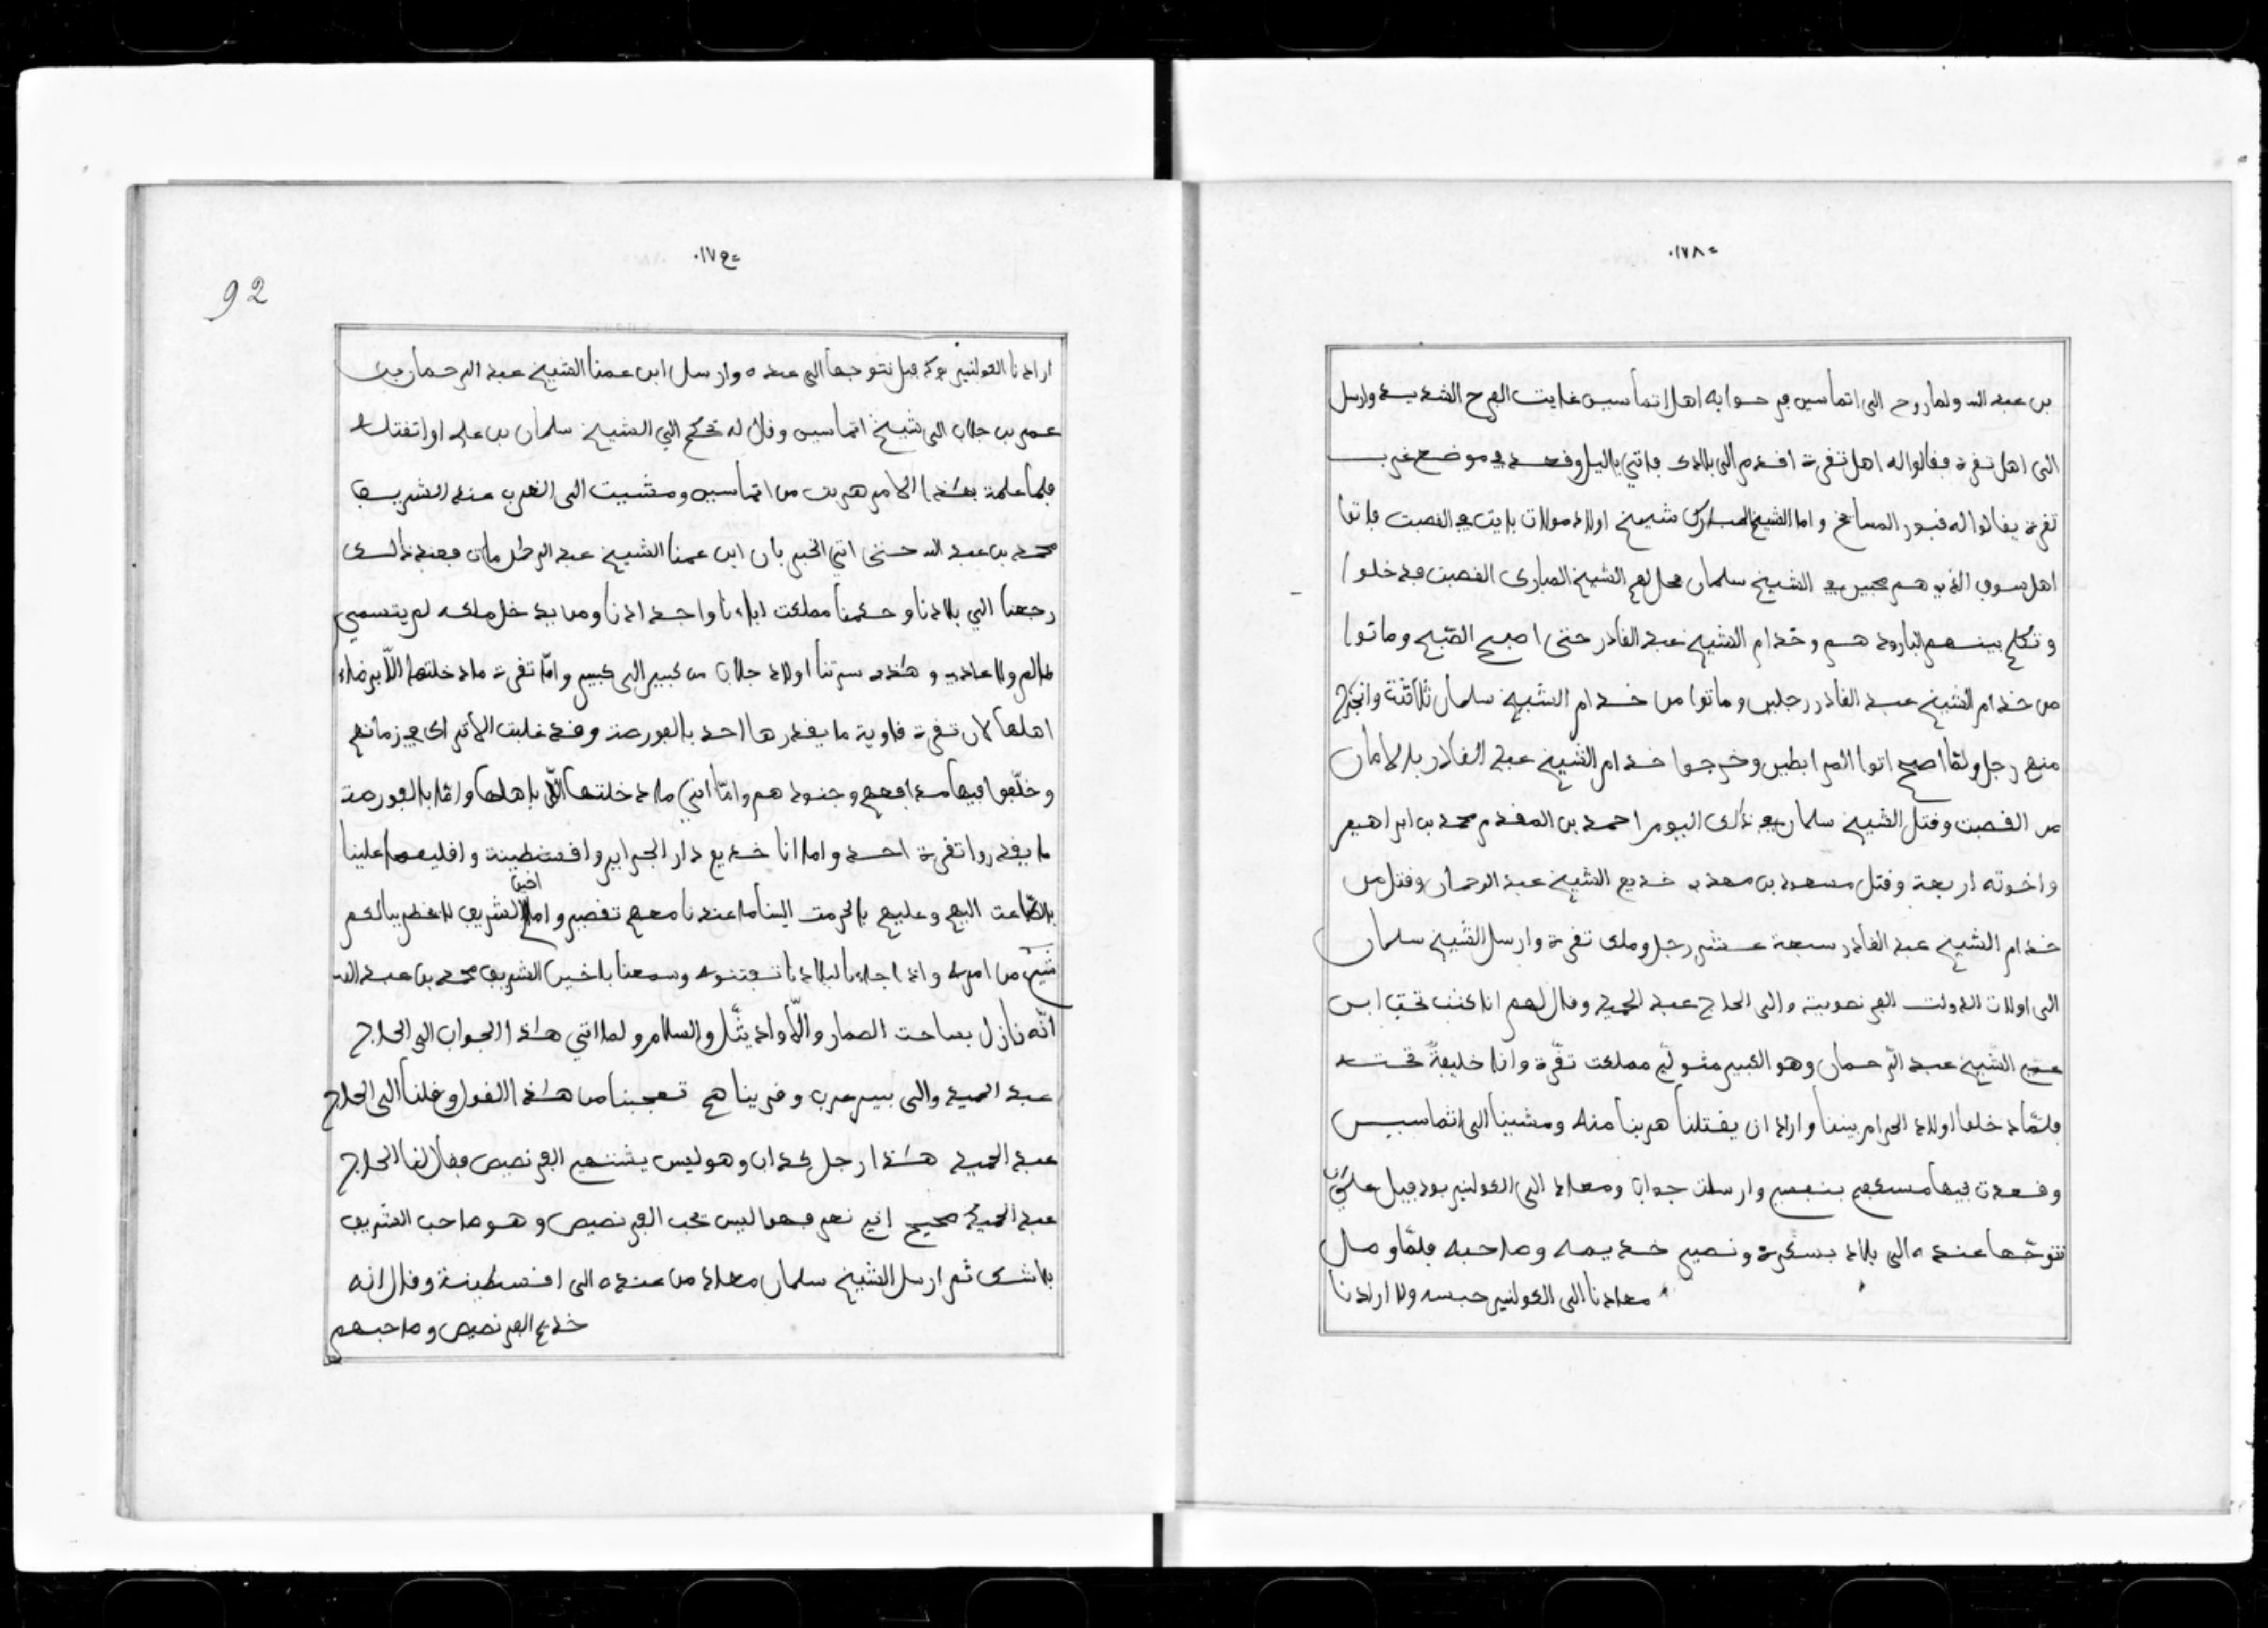 ١٧٨٠
بن عبد الله ولما روح الى اتماسين فرحوا به اهل اتماسين غايت الفرح الشديد وارسل
الى اهل تفرة فقالوا له اهل تفرة اقدم الى بلادك فاتي باليل وقعد في موضع غرب
تفرة يقالوا له قبور المساعخ واما الشيخ المبارك شيخ اولاد مولات بايت في القصبت فاتوا
اهل سوف الذي هم محبين في الشيخ سلمان فحل لهم الشيخ المبارك القصبت فدخلوا
وتكلم بينهم البارود هم وخدام الشيخ عبد القادر حتى اصبح الصبح وماتوا
من خدام الشيخ عبد القادر رجلين وماتوا من خدام الشيخ سلمان ثلاثة وانجرح
منهم رجل ولما اصبح اتوا المرابطين وخرجوا خدام الشيخ عبد القادر بالامان
من القصبت وقتل الشيخ سلمان في ذلك اليوم احمد بن المقدم محمد بن ابراهيم
واخوته اربعة وقتل مسعود بن معدي خديم الشيخ عبد الرحمان وقتل من
خدام الشيخ عبد القادر سبعة عشر رجل وملك تفرة وارسل الشيخ سلمان
الى اولات الدولت الفرنصوية والى الحاج عبد الحميد وقال لهم انا كنت تحت ابن
عمي الشيخ عبد الرحمان وهو الكبير متولي مملكت تفرة وانا خليفة تحته
فلما دخلوا اولاد الحرام بيننا واراد ان يقتلنا هربنا منه ومشينا الى اتماسين
وقعدت فيها مسكهم بنفسي وارسلت جواب ومعاد الى الكولنير بودفيل على ان
نتوجها عنده الى بلاد بسكرة ونصير خديمه وصاحبه فلما وصل
معادنا الى الكولنير حبسه ولا ارادنا
١٧٩٠
92
ارادنا الكولنير بوك فيل نتوجها الى عنده وارسل ابن عمنا الشيخ عبد الرحمان بن
عمر بن جلاب الى شيخ اتماسين وقال له تحكم الي الشيخ سلمان بن علي او اتقتله
فلما علمة بهذا الامر هربت من اتماسين ومشيت الى الغرب عند الشريف
محمد بن عبد الله حتى اتي الخبر بان ابن عمنا الشيخ عبد الرحمان مات فبعد ذلك
رجعنا الي بلادنا وحكمنا مملكت اباءنا واجدادنا ومن يدخل ملكه لم يتسمي
ظالم ولا عادي وهذه سرتنا اولاد جلاب من كبير الى كبير واما تفرة ما دخلتها الا برضاء
اهلها لان تفرة قاوية ما يقدرها احد بالفورصة وقد غلبت الاتراك في زمانهم
وخلفوا فيها مدافعهم وجنودهم واما اني ما دخلتها الا باهلها واما بالفورصة
ما يقدروا تفرة احد واما انا خديم دار الجزاير واقسطينة واقليمها علينا
بالطاعت اليهم وعليهم بالحرمت الينا ما عندنا معهم تقصير واما اخينا الشريف لا يخطر ببالكم
شيئ من امره واذا جاءنا لبلادنا تفتنوه وسمعنا باخين الشريف محمد بن عبد الله
انه نازل بساحت الصمار والا واد يتل والسلام ولما اتي هذا الجواب الى الحاج
عبد الحميد والى بيير عرب وقريناهم تعجبنا من هذا القول وقلنا الى الحاج
عبد الحميد هذا رجل كذاب وهو ليس يشتهي الفرنصيص فقال لنا الحاج
عبد الحميد صحيح اني نعرفها ليس يحب الفرنصيص وهو صاحب الشريف
بلا شك ثم ارسل الشيخ سلمان معاد من عنده الى اقسطينة وقال انه
خديم الفرنصيص وصاحبهم